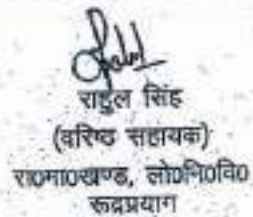 राहुल सिंह
(वरिष्ठ सहायक)
रा०मा०खण्ड, लो०नि०वि०
रूद्रप्रयाग